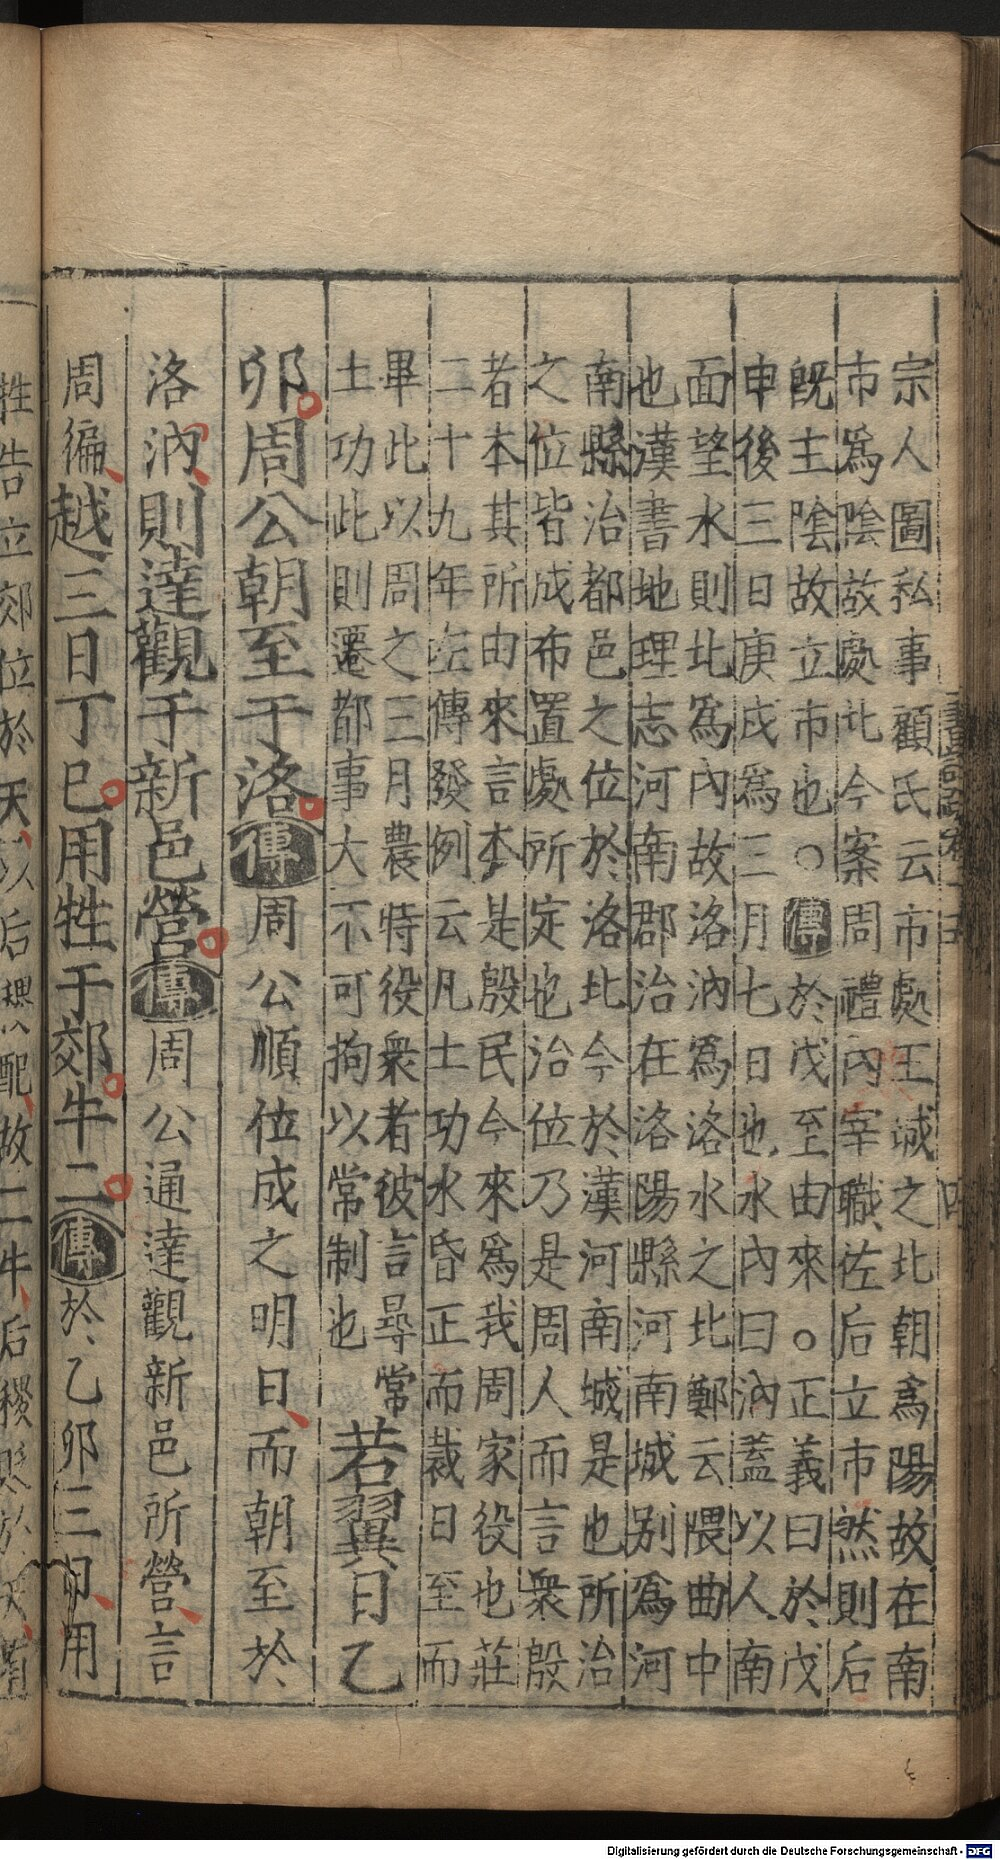 宗人圖私事顧氏云市處王城之北朝爲陽故在南
市爲陰故處北今案周禮內宰職佐后立市然則后
既主陰故立市也○傳於戊至由來○正義曰於戊
申後三日庚戌爲三月七日也水內曰汭蓋以人南
面望水則北爲內故洛汭爲洛水之北鄭云隈曲中
也漢書地理志河南郡治在洛陽縣河南城别爲河
南縣治都邑之位於洛北今於漢河南城是也所治
之位皆成布置處所定也治位乃是周人而言衆殷
者本其所由來言本是殷民今來爲我周家役也莊
二十九年左傳發例云凡土功水昏正而裁日至而
畢此以周之三月農特役衆者彼言尋常
土功此則遷都事大不可拘以常制也
若翼日乙
卯周公朝至于洛傳周公順位成之明日而朝至於
洛汭則達觀于新邑營傳周公通達觀新邑所營言
周徧越三日丁巳用牲于郊牛二傳於乙卯三日用
牲告立郊位於天以后稷配故二牛后稷貶於天
Digitalisierung gefördert durch die Deutsche Forschungsgemeinschaft - DFG